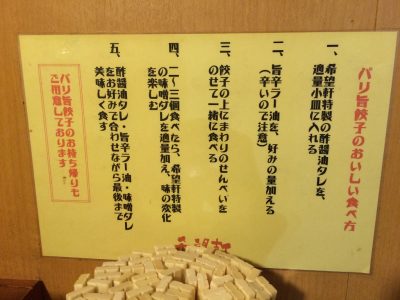 パリ旨餃子のおいしい食べ方
一、希望軒特製の酢醤油タレを、
適量小皿に入れる
二、旨辛ラー油を、好みの量加える
（辛いので注意）
三、餃子の上にまわりのせんべいを
のせて一緒に食べる
四、二〜三個食べたら、希望軒特製
の味噌タレを適量加え、味の変化
を楽しむ
五、酢醤油タレ・旨辛ラー油・味噌タレ
をお好みで合わせながら最後まで
美味しく食す
パリ旨餃子のお持ち帰りも
ご用意しております